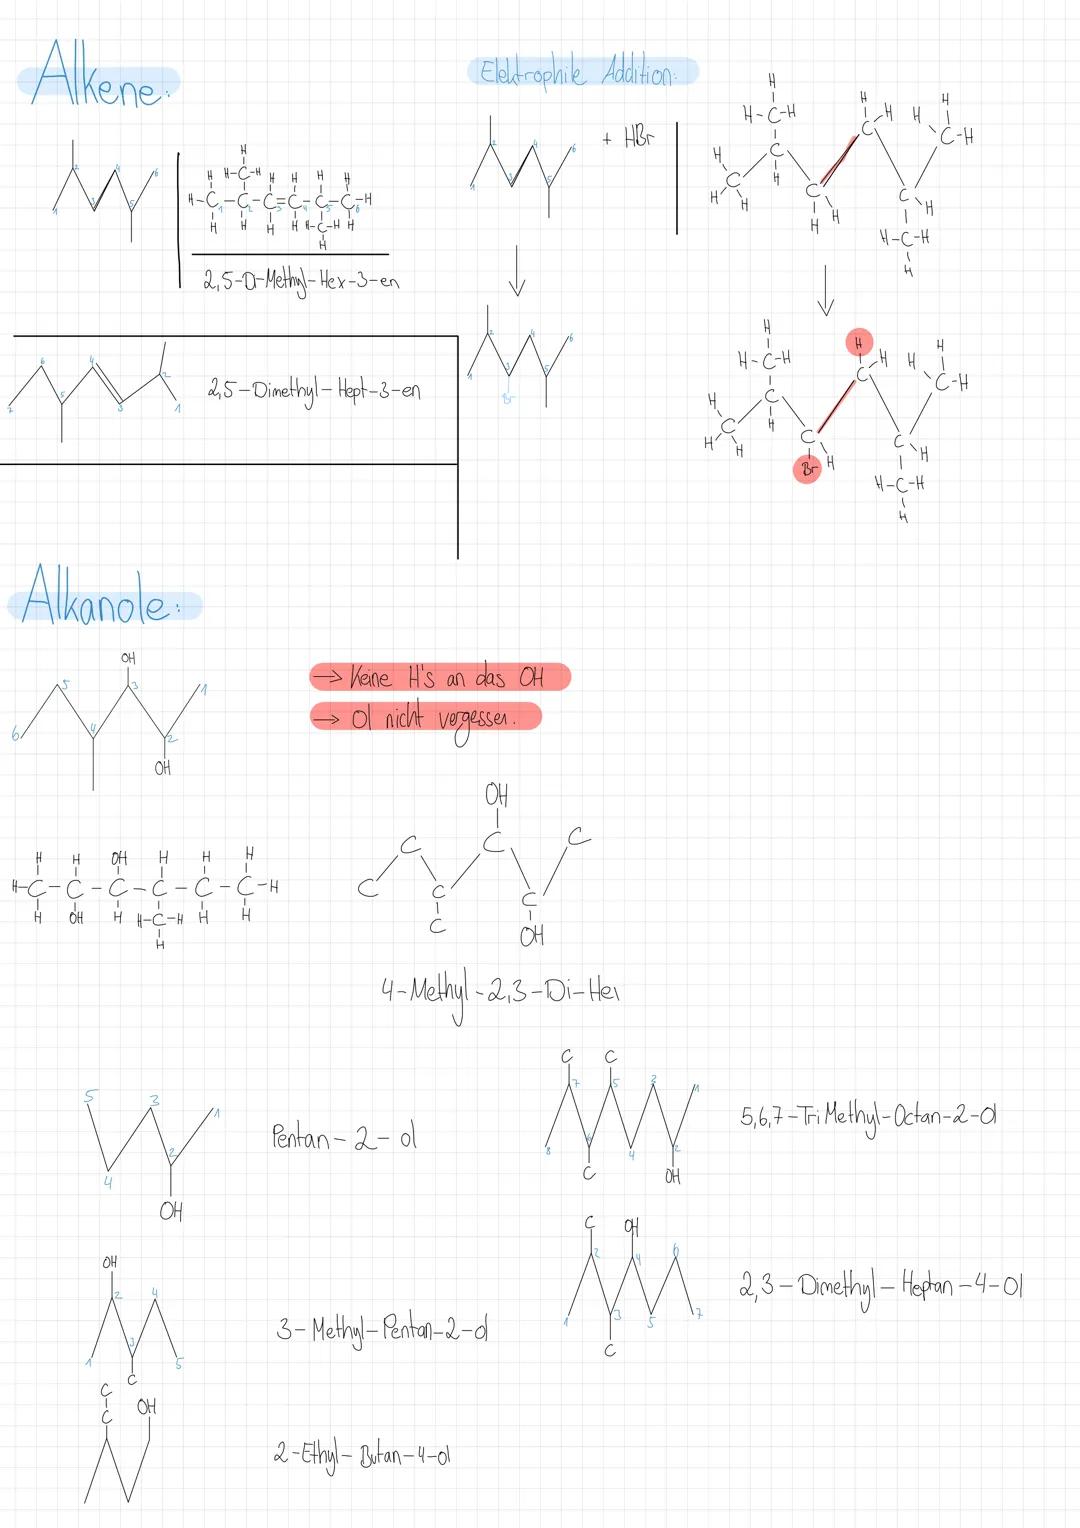 Alkene:
Elektrophile Addition:
+ HBr
2,5-Di-Methyl-Hex-3-en
2,5-Dimethyl-Hept-3-en
Br
Br
Alkanole:
OH
OH
→ Keine H's an das OH
→ Ol nicht vergessen.
OH
OH
OH
OH
4-Methyl-2,3-Di-Hex
Pentan-2-ol
OH
5,6,7-TriMethyl-Octan-2-ol
OH
OH
3-Methyl-Pentan-2-ol
OH
2,3-Dimethyl-Heptan-4-Ol
OH
2-Ethyl-Butan-4-ol